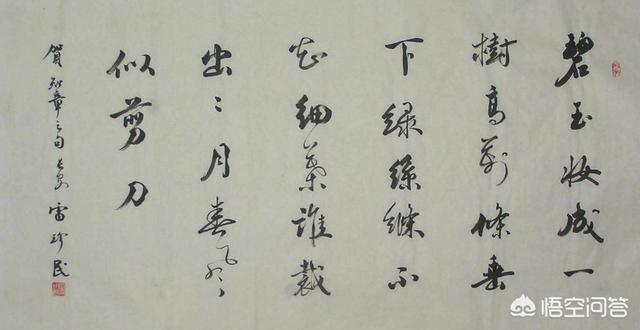 碧玉妆成一
樹高萬條垂
下緑絲縧不
知細葉誰裁
出二月春風
似剪刀
賀知章之句長安雷珍民
悟空问答